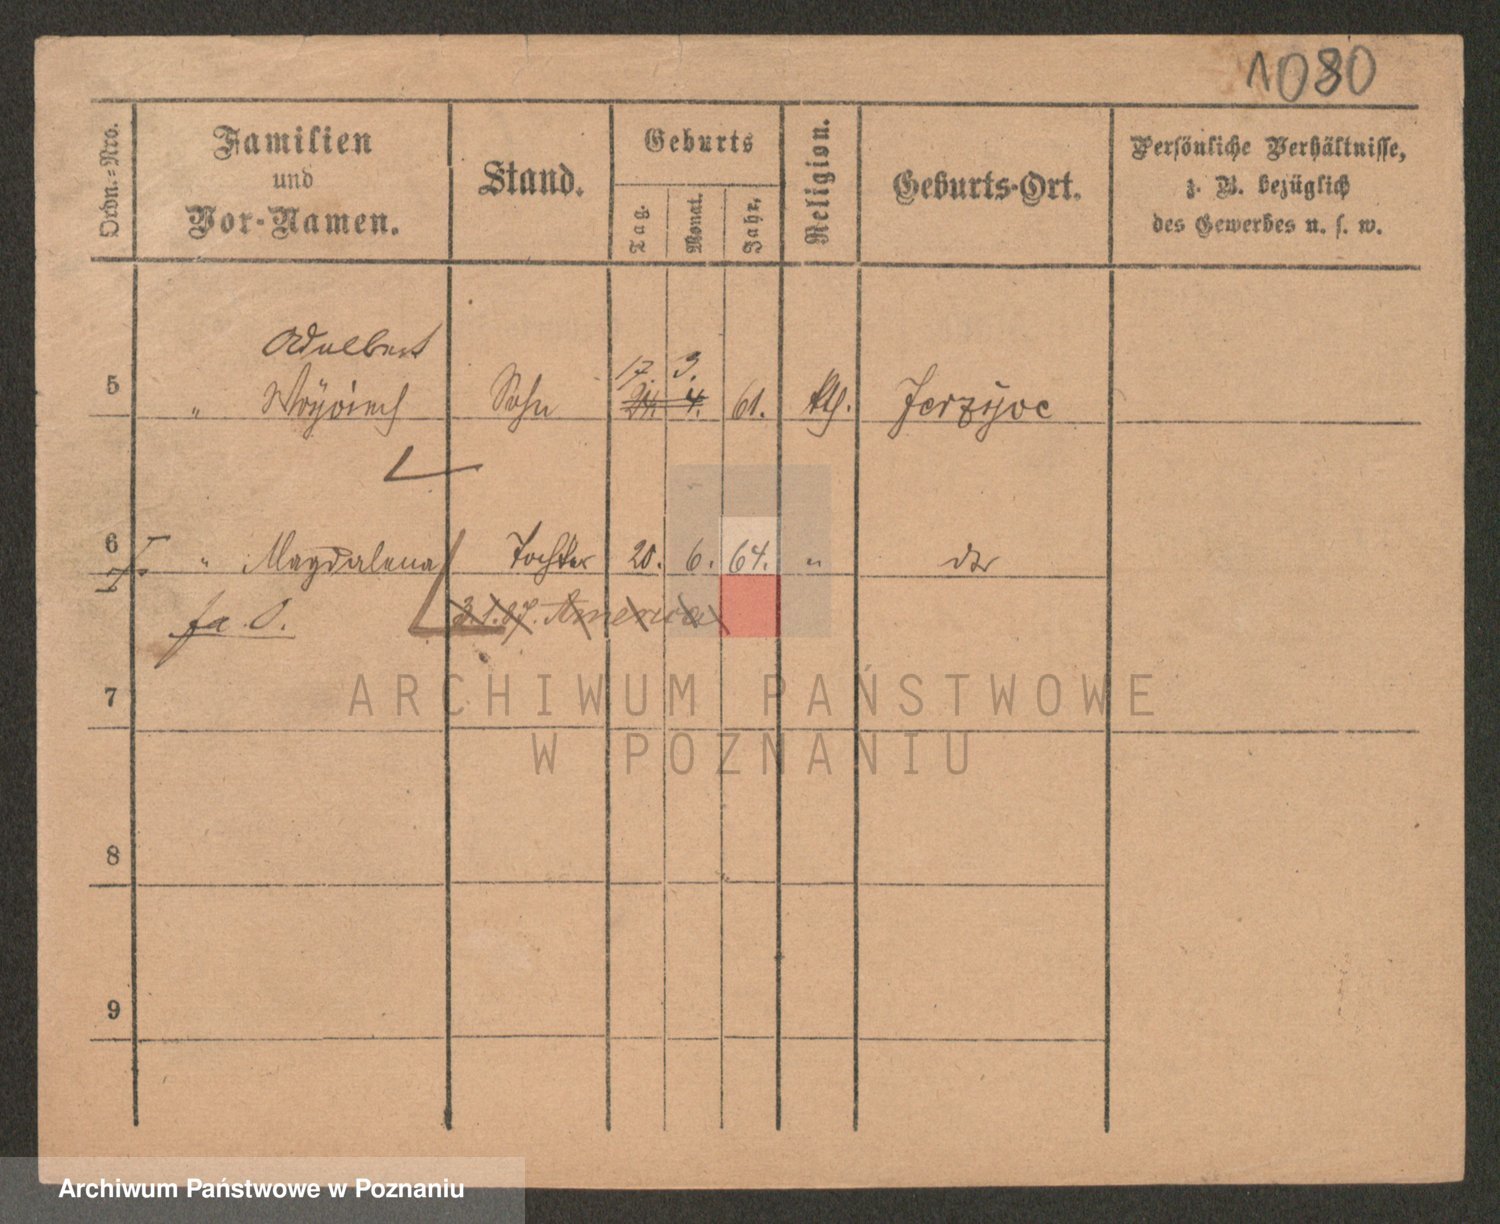 1080
Ordn.-Nro.
Familien
und
Vor-Namen.
Stand.
Geburts
Tag.
Monat.
Jahr.
Religion.
Geburts-Ort.
Persönliche Verhältnisse,
z. B. bezüglich
des Gewerbes u. s. w.
Adalbert
17. 3.
5 " Woyciech Sohn 24. 4. 61. kth. Jerzyce
6 " Magdalena Tochter 20. 6. 64. " dto
3.1.87. America
ARCHIWUM PAŃSTWOWE
7
W POZNANIU
8
9
Archiwum Państwowe w Poznaniu